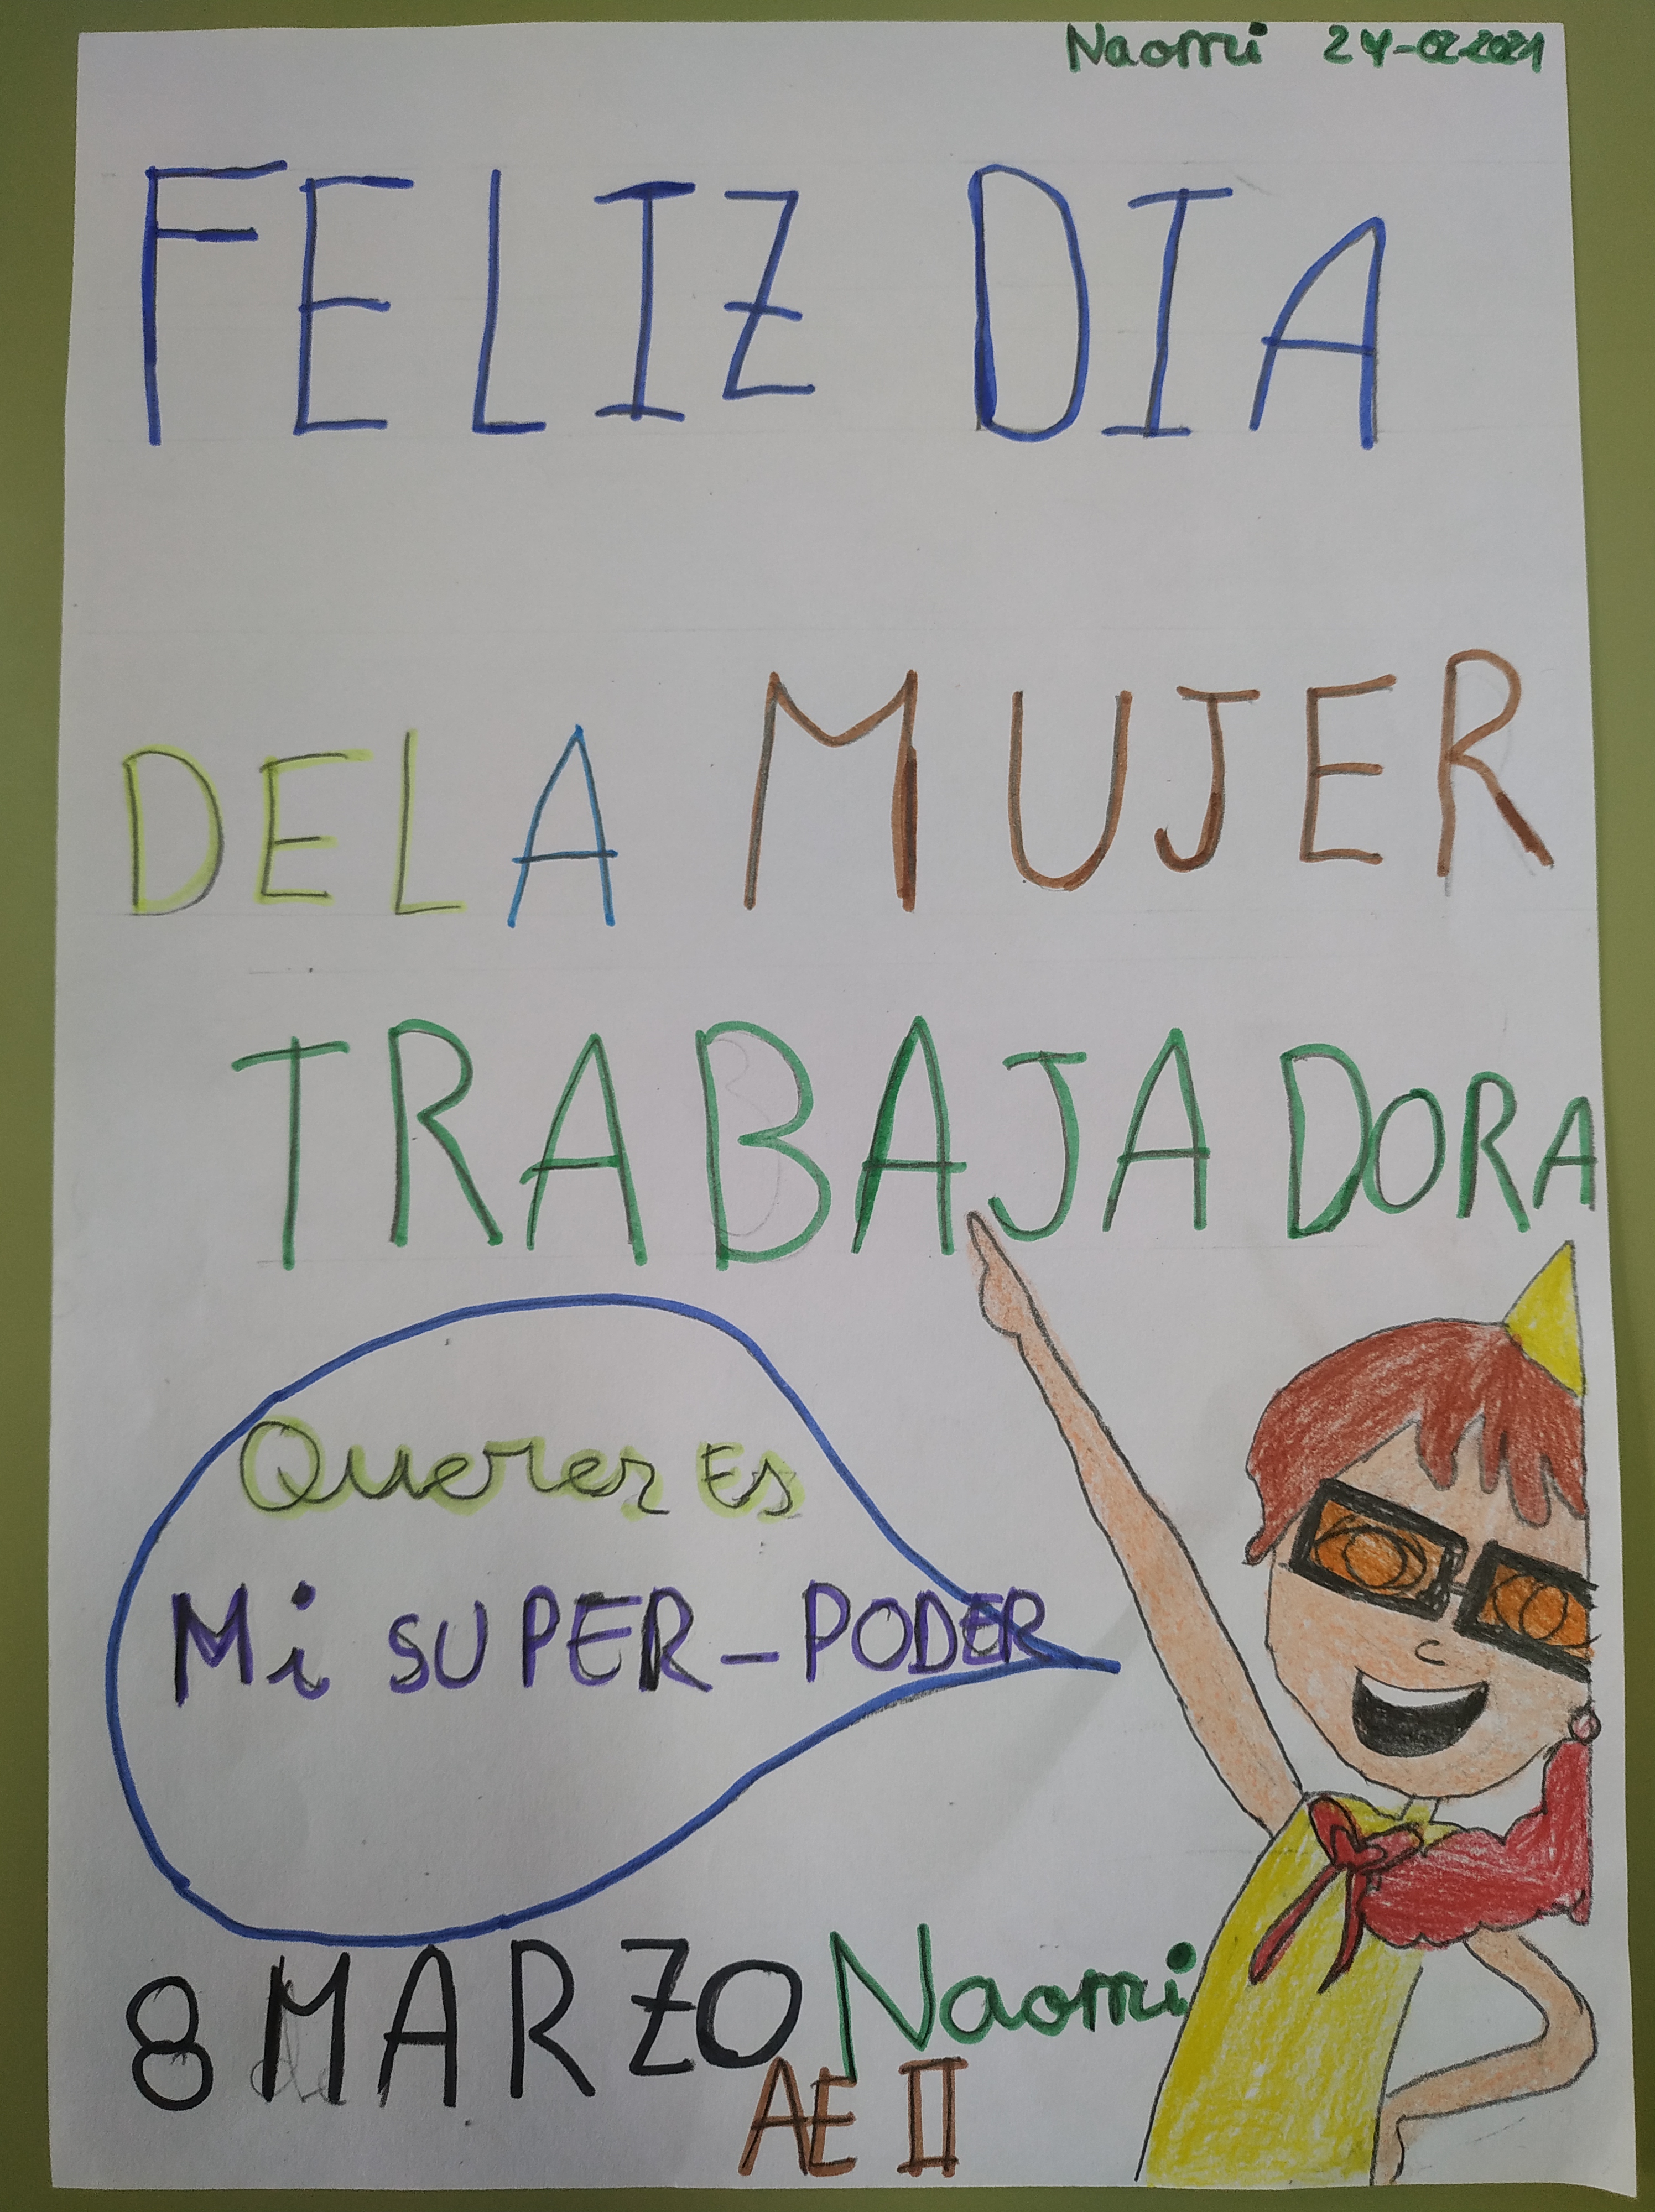 Naomi 24-02-2021
FELIZ DIA
DE LA MUJER
TRABAJADORA
Querer Es
Mi SUPER-PODER
8 MARZO Naomi
AE II